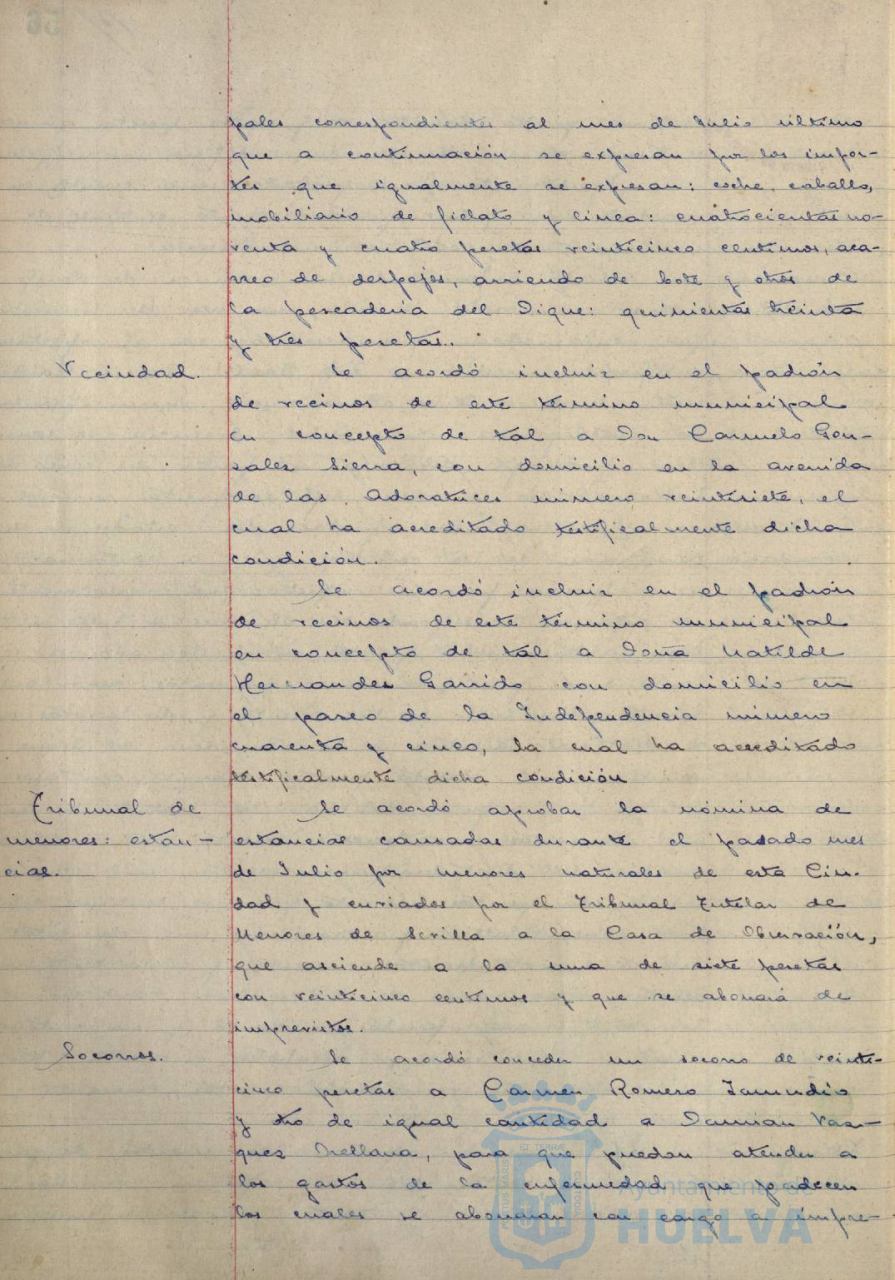 pales correspondientes al mes de Julio último
que a continuación se expresan por los impor-
tes que igualmente se expresan: coche, caballo,
mobiliario de fielato y línea: cuatrocientas no-
venta y cuatro pesetas veinticinco centimos, aca-
rreo de despojos, arriendo de bote y otros de
la pescaderia del Dique: quinientas treinta
y tres pesetas..
Vecindad.
Se acordó incluir en el padrón
de vecinos de este termino municipal
en concepto de tal a Don Carmelo Gon-
sales Sierra, con domicilio en la avenida
de las Adoratrices número veintisiete, el
cual ha acreditado testificalmente dicha
condición.
Se acordó incluir en el padrón
de vecinos de este término municipal
en concepto de tal a Doña Matilde
Hernandes Garrido con domicilio en
el paseo de la Independencia número
cuarenta y cinco, la cual ha acreditado
testificalmente dicha condición
Tribunal de
menores: estan-
cias.
Se acordó aprobar la nómina de
estancias causadas durante el pasado mes
de Julio por menores naturales de esta Ciu-
dad y enviados por el Tribunal Tutelar de
Menores de Sevilla a la Casa de Observación,
que asciende a la suma de siete pesetas
con veinticinco centimos y que se abonará de
imprevistos.
Socorros.
Se acordó conceder un socorro de veinti-
cinco pesetas a Carmen Romero
y otro de igual cantidad a Damian Vas-
ques Orellana, para que puedan atender a
los gastos de la enfermedad que padecen
los cuales se abonaran con cargo a impre-
Ayuntamiento de
HUELVA